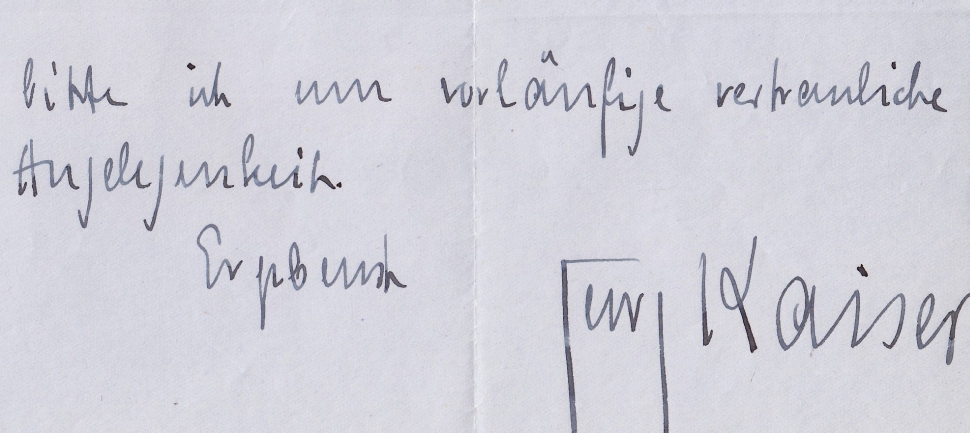 bitte ich um vorläufige vertrauliche
Angelegenheit.
Ergebenst
Georg Kaiser